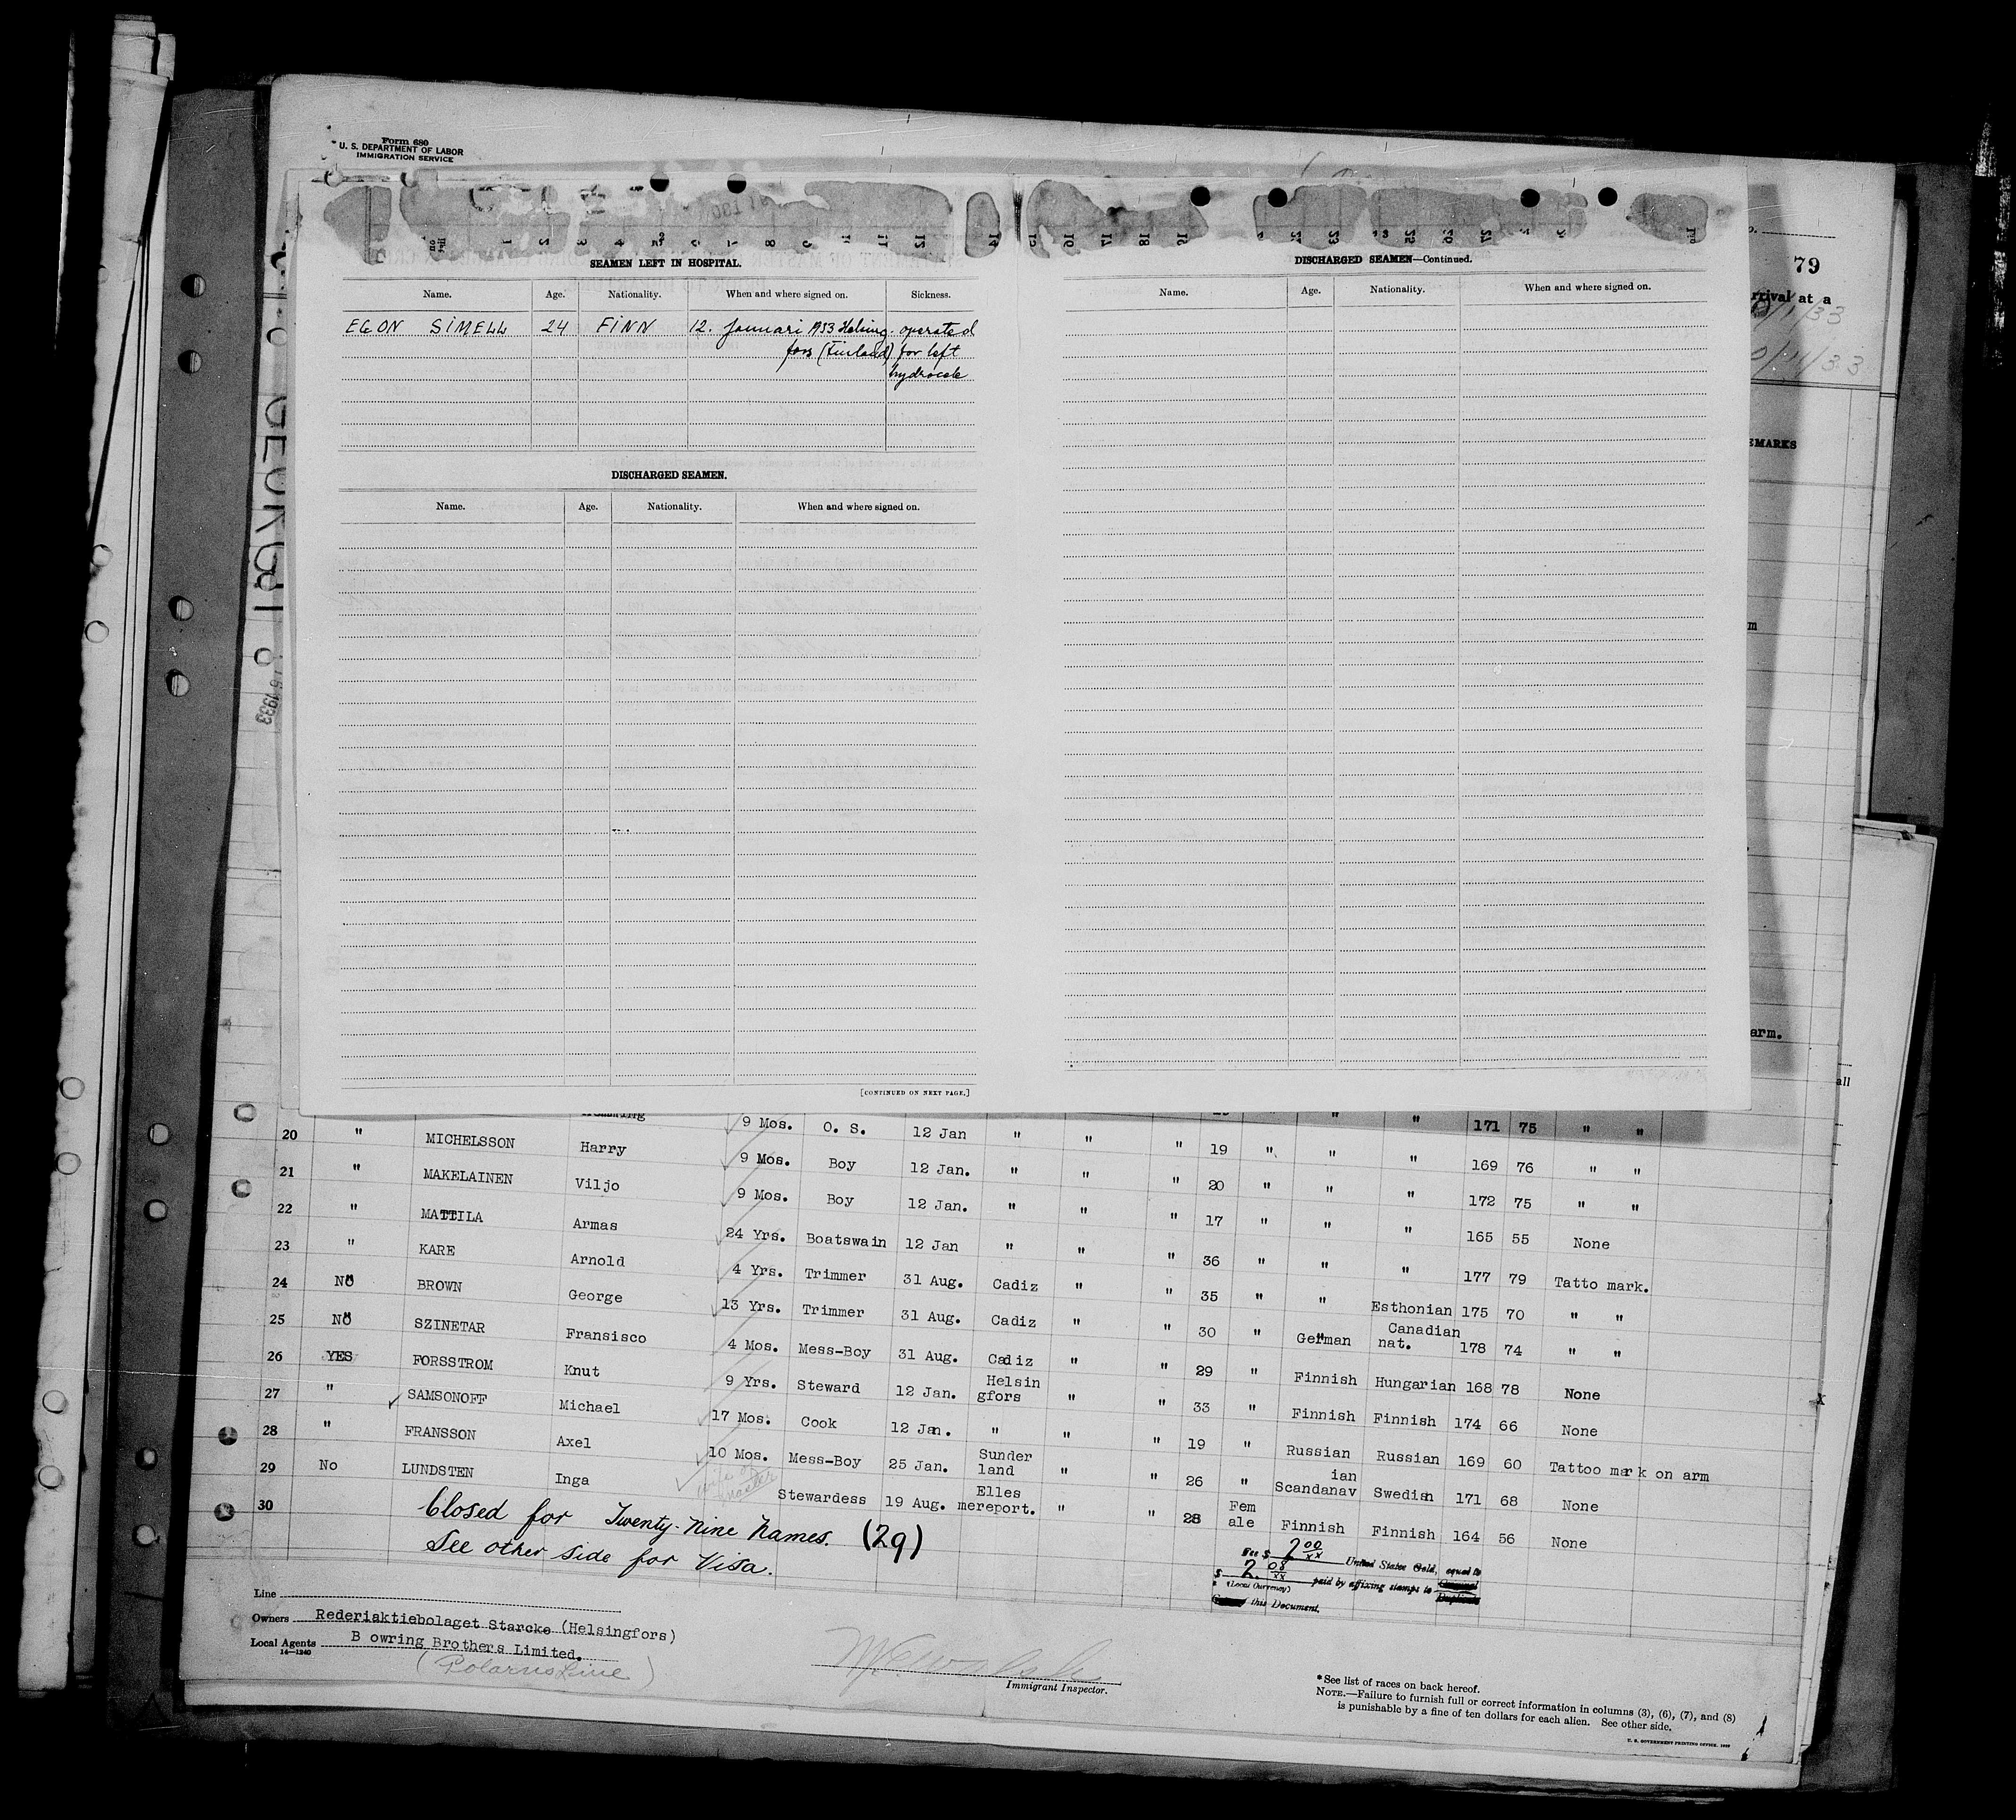 Form 680
U. S. DEPARTMENT OF LABOR
IMMIGRATION SERVICE
79
rrival at a
EMARKS
arm.
all
1933
SEAMEN LEFT IN HOSPITAL.
Name. Age. Nationality. When and where signed on. Sickness.
EGON SIMELL 24 FINN 12. Januari 1933 Helsing- operated
fors (Finland) for left
hydrocele
DISCHARGED SEAMEN.
Name. Age. Nationality. When and where signed on.
[CONTINUED ON NEXT PAGE.]
DISCHARGED SEAMEN—Continued.
Name. Age. Nationality. When and where signed on.
9 Mos. O. S. 12 Jan " " " " " " 171 75 " "
20 " MICHELSSON Harry 9 Mos. Boy 12 Jan. " " " 19 " " " 169 76 " "
21 " MAKELAINEN Viljo 9 Mos. Boy 12 Jan. " " " 20 " " " 172 75 " "
22 " MATTILA Armas 24 Yrs. Boatswain 12 Jan " " " 17 " " " 165 55 None
23 " KARE Arnold 4 Yrs. Trimmer 31 Aug. Cadiz " " 36 " " " 177 79 Tatto mark.
24 No BROWN George 13 Yrs. Trimmer 31 Aug. Cadiz " " 35 " " Esthonian 175 70 " "
25 No SZINETAR Fransisco 4 Mos. Mess-Boy 31 Aug. Cadiz " " 30 " German Canadian nat. 178 74 " "
26 YES FORSSTROM Knut 9 Yrs. Steward 12 Jan. Helsin gfors " " 29 " Finnish Hungarian 168 78 None
27 " SAMSONOFF Michael 17 Mos. Cook 12 Jan. " " " 33 " Finnish Finnish 174 66 None
28 " FRANSSON Axel 10 Mos. Mess-Boy 25 Jan. Sunder land " " 19 " Russian Russian 169 60 Tattoo mark on arm
29 No LUNDSTEN Inga wife of master Stewardess 19 Aug. Elles mereport. " " 26 " Scandanav ian Swedish 171 68 None
30 " 28 Fem ale Finnish Finnish 164 56 None
Closed for Twenty-Nine Names. (29)
See other side for Visa.
Fee $ 2 00/xx United States Gold, equal to
$ 2. 00/xx paid by affixing stamps to
(Local Currency)
this Document.
Line
Owners Rederiaktiebolaget Starcke (Helsingfors)
Local Agents B owring Brothers Limited.
14—1240
(Polarus Line)
Immigrant Inspector.
*See list of races on back hereof.
NOTE.—Failure to furnish full or correct information in columns (3), (6), (7), and (8)
is punishable by a fine of ten dollars for each alien. See other side.
U. S. GOVERNMENT PRINTING OFFICE